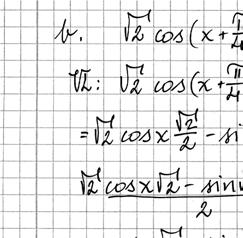 b. √2 cos(x+π/4
VZ: √2 cos(x+π/4
=√2 cosx √2/2 - si
√2 cosx√2 - sin
2